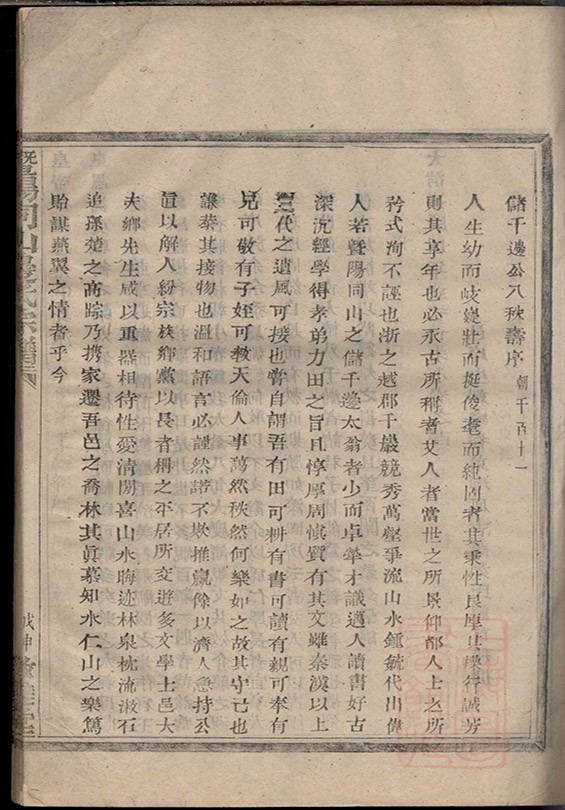 儲千邊公八秩壽序 朝千百十一
人生幼而岐嶷壯而挺俊耄而純固者其秉性良厚其操行誠芳
則其享年也必永古所稱者艾人者當世之所景仰都人士之所
矜式洵不誣也浙之越郡千巖競秀萬壑爭流山水鍾毓代出偉
人若暨陽同山之儲千邊太翁者少而卓犖才識邁人讀書好古
深沉經學得孝弟力田之旨且惇厚周愼質有其文雖秦漢以上
三代之遺風可接也嘗自謂吾有田可耕有書可讀有親可奉有
兄可敬有子姪可教天倫人事萬然秩然何樂如之故其守己也
謙恭其接物也溫和語言必謹然諾不欺推贏餘以濟人急持公
直以解人紛宗族鄉黨以長者稱之平居所交遊多文學上邑大
夫鄉先生咸以重器相待性愛清閒喜山水晦迹林泉枕流漱石
追孫楚之高踪乃携家遷吾邑之喬林其眞慕知水仁山之樂篤
貽謀燕翼之情者乎今
暨陽同山邊氏宗譜
戊申